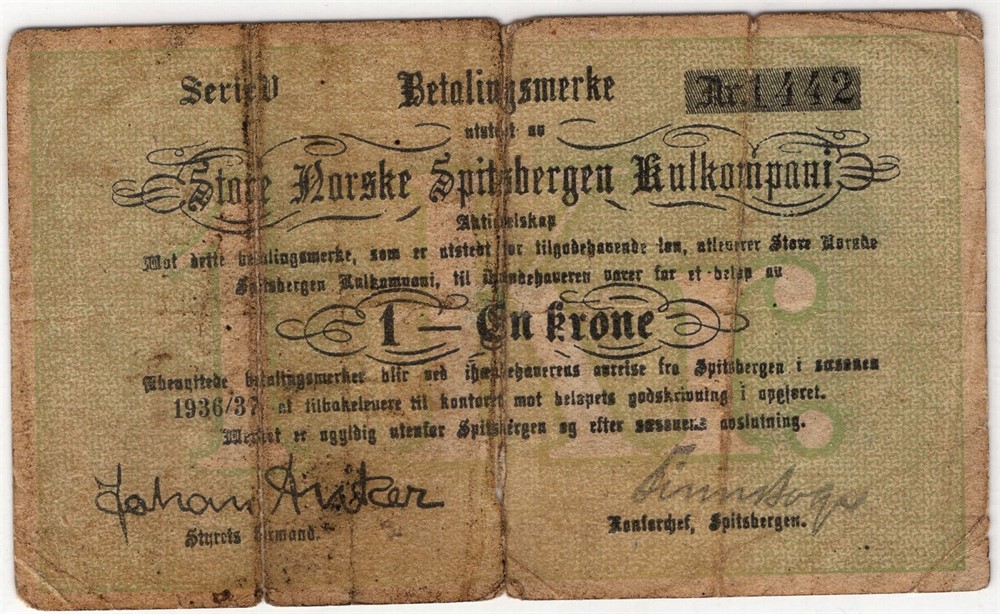 Serie V Betalingsmerke Nr. 1442
utstedt av
Store Norske Spitsbergen Kulkompani
Aktieselskap
Mot dette betalingsmerke, som er utstedt for tilgodehavende løn, utleverer Store Norske
Spitsbergen Kulkompani, til ihændehaveren varer for et beløp av
1 — En krone
Ubenyttede betalingsmerker blir ved ihændehaverens avreise fra Spitsbergen i sæsonen
1936/37 at tilbakelevere til kontoret mot beløpets godskrivning i opgjøret.
Merket er ugyldig utenfor Spitsbergen og efter sæsonens avslutning.
Johan
Styrets formand.
Kontorchef, Spitsbergen.
1 Kr.